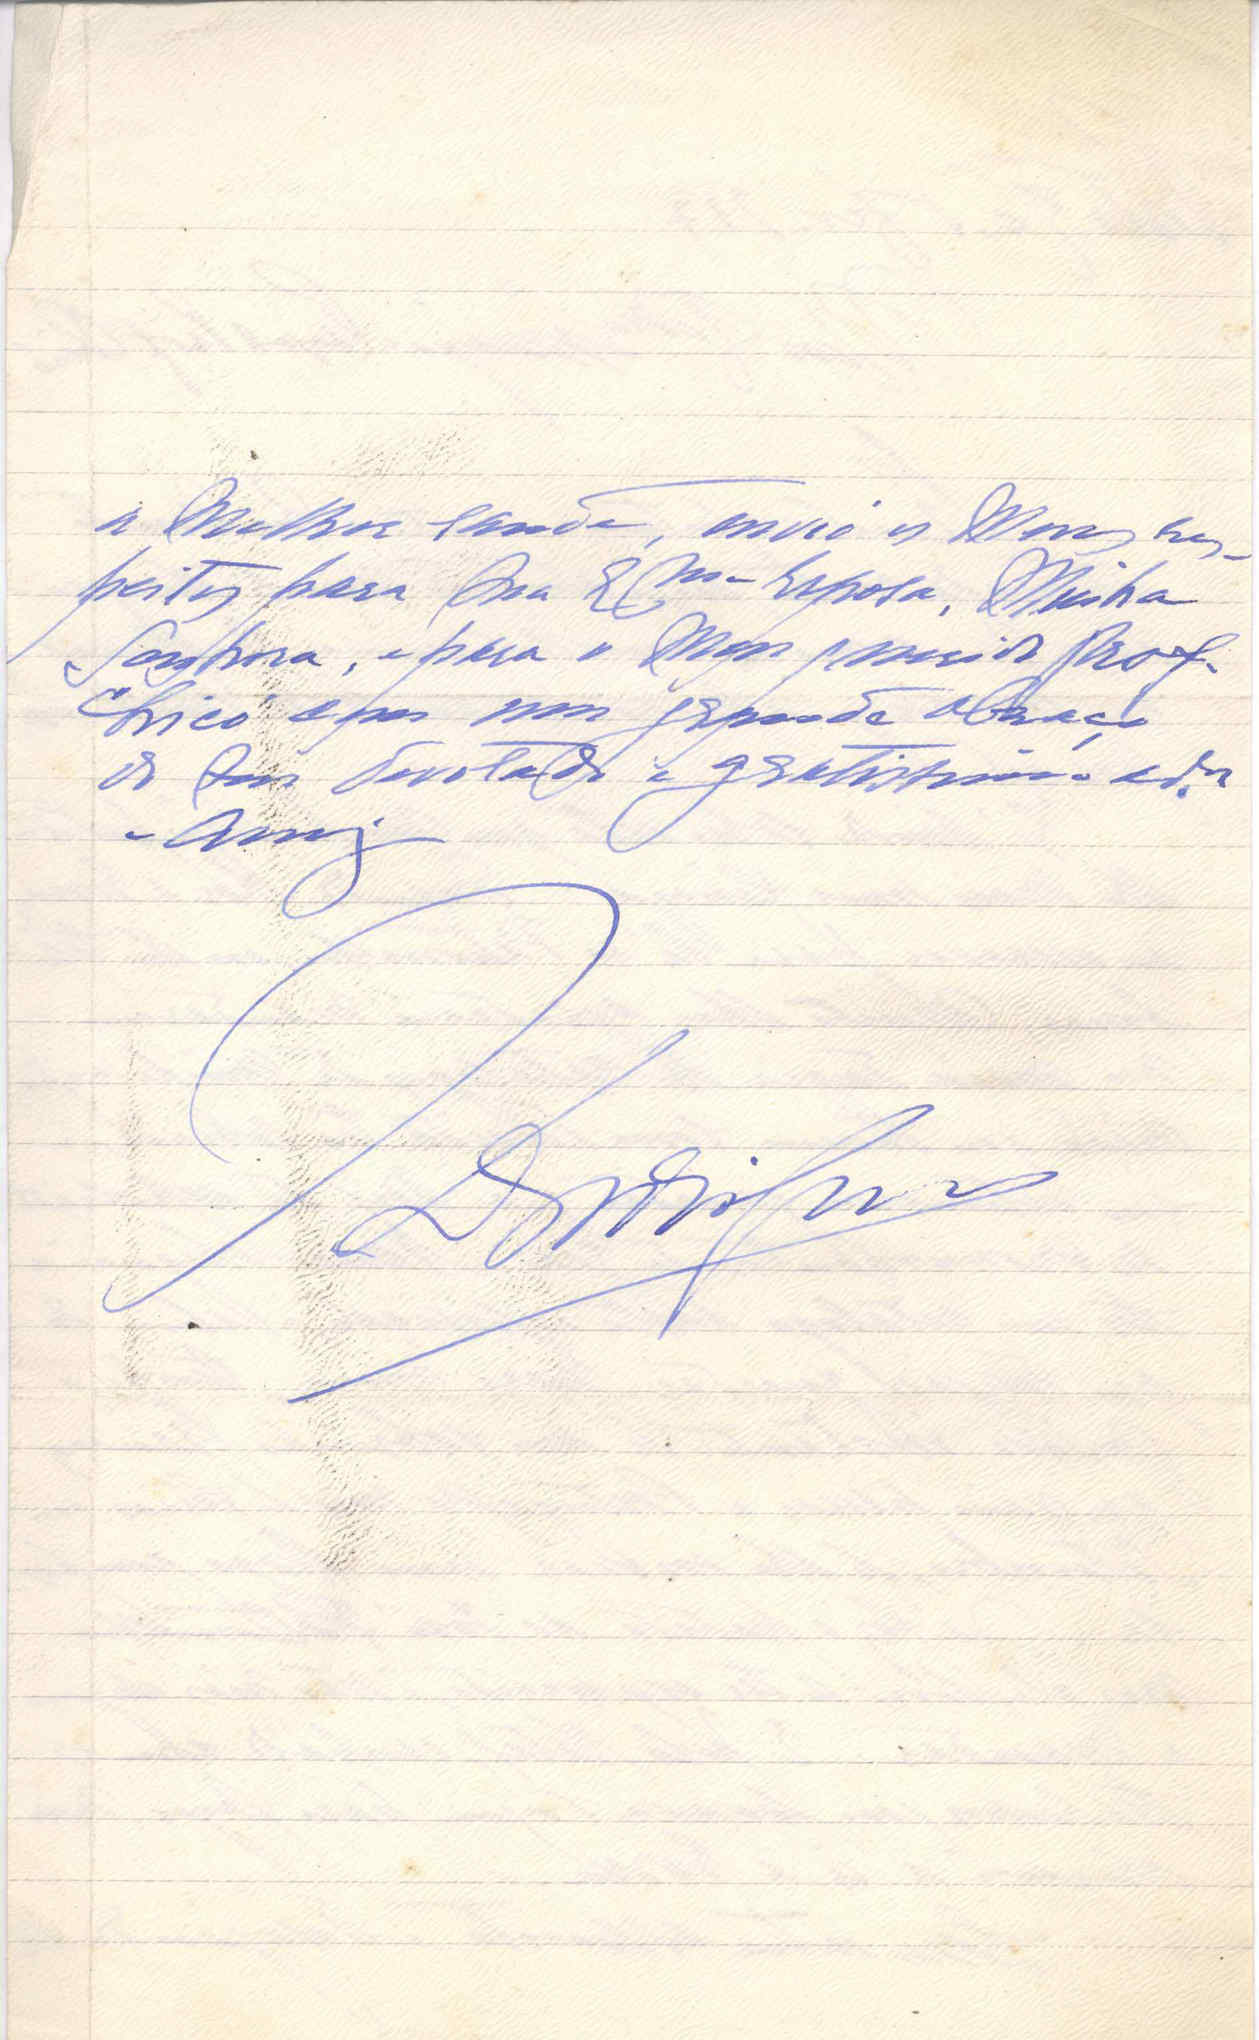 a melhor saude, envio os meus res-
peitos para Sua Exma Esposa, Minha
Senhora, e para o meu querido Prof.
e um grande abraço
do seu devotado e gratissimo
e amigo